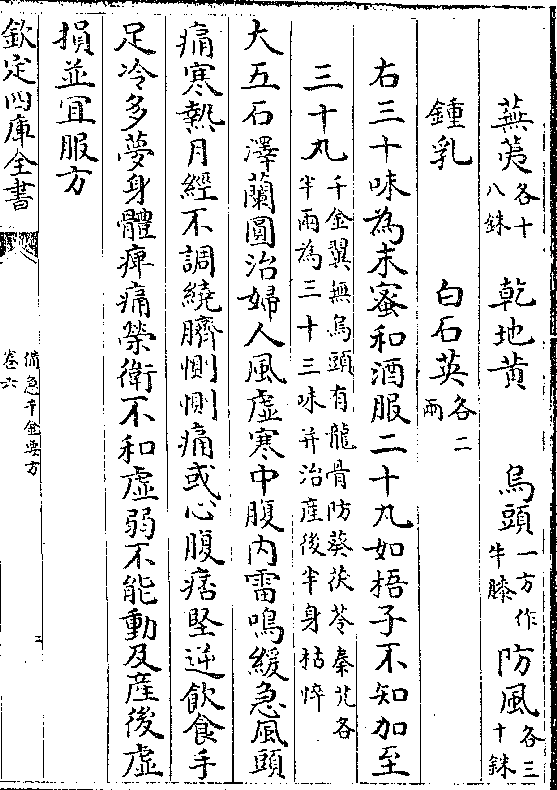 蕪荑各十八銖 乾地黄 烏頭一方作牛膝 防風各三十銖
鍾乳 白石英各二兩
右三十味為末蜜和酒服二十丸如梧子不知加至
三十丸千金翼無烏頭有龍骨防葵茯苓秦艽各半兩為三十三味并治産後半身枯悴
大五石澤蘭圓治婦人風虛寒中腹内雷鳴緩急風頭
痛寒熱月經不調繞臍惻惻痛或心腹痞堅逆飲食手
足冷多夢身體痺痛榮衛不和虛弱不能動及産後虛
損並宜服方
欽定四庫全書
備急千金要方
卷六